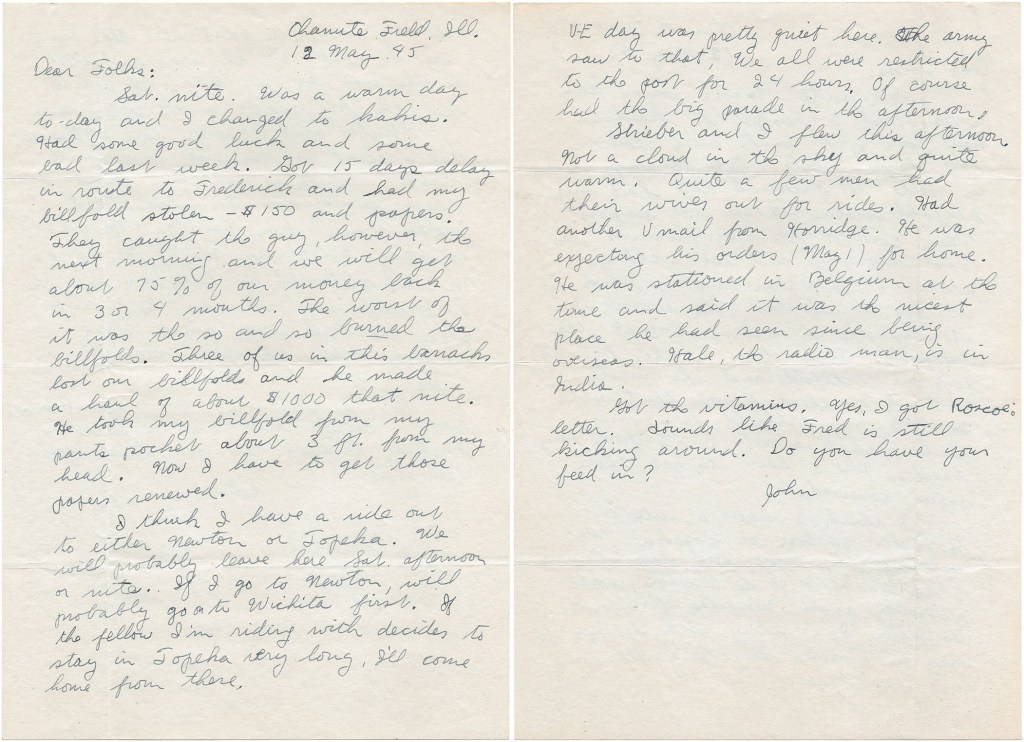 Chanute Field, Ill.
12 May 45
Dear Folks:
Sat. nite. Was a warm day
to-day and I changed to kakis.
Had some good luck and some
bad last week. Got 15 days delay
in route to Frederick and had my
billfold stolen - $150 and papers.
They caught the guy, however, the
next morning and we will get
about 75% of our money back
in 3 or 4 months. The worst of
it was the so and so burned the
billfolds. Three of us in this barracks
lost our billfolds and he made
a haul of about $1000 that nite.
He took my billfold from my
pants pocket about 3 ft. from my
head. Now I have to get those
papers renewed.
I think I have a ride out
to either Newton or Topeka. We
will probably leave here Sat. afternoon
or nite. If I go to Newton, will
probably go on to Wichita first. If
the fellow I'm riding with decides to
stay in Topeka very long, I'll come
home from there.
V-E day was pretty quiet here. The army
saw to that, We all were restricted
to the post for 24 hours. Of course
had the big parade in the afternoon.
Shrieber and I flew this afternoon.
Not a cloud in the sky and quite
warm. Quite a few men had
their wives out for rides. Had
another V mail from Horridge. He was
expecting his orders (May 1) for home.
He was stationed in Belgium at the
time and said it was the nicest
place he had seen since being
overseas. Hale, the radio man, is in
India.
Got the vitamins. Yes, I got Roscoe's
letter. Sounds like Fred is still
kicking around. Do you have your
feed in?
John